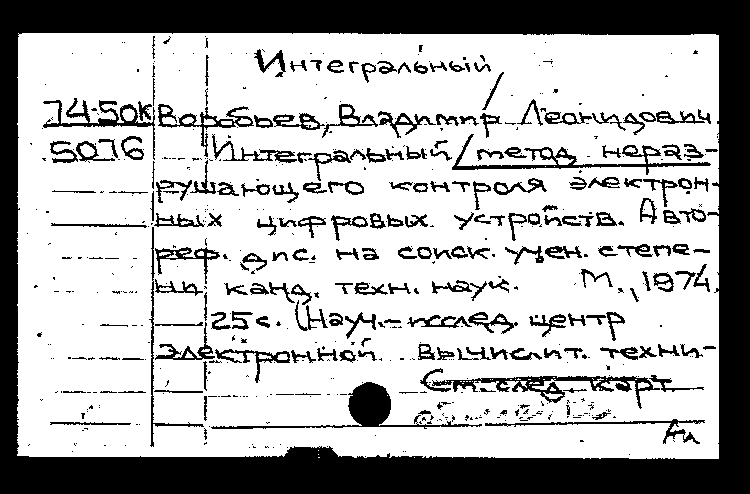 Интегральный
74-50К Воробьев, Владимир Леонидович.
5076 Интегральный / метод нераз-
рушающего контроля электрон-
ных цифровых устройств. Авто-
реф. дис. на соиск. учен. степе-
ни канд. техн. наук. М., 1974.
25 с. (Науч.-исслед. центр
электронной вычислит. техни-
См. след. карт.